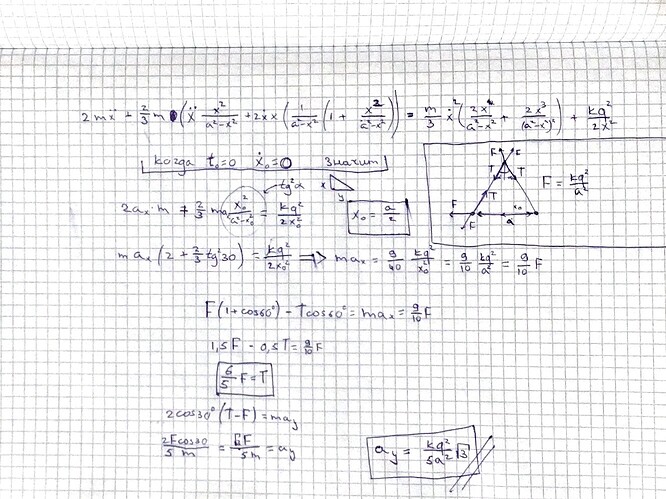 2mẍ + 2/3 m (ẍ x²/(a²-x²) + 2ẋx (1/(a²-x²) (1 + x²/(a²-x²)))) = m/3 ẋ² (2x/(a²-x²) + 2x³/(a²-x²)²) + kq²/2x²
когда t₀=0 ẋ₀=0 значит
tg²α
x
y
2aₓm + 2/3 maₓ x₀²/(a²-x₀²) = kq²/2x₀²
x₀ = a/2
F F
T T
T
F
F
x₀
a
F = kq²/a²
maₓ(2 + 2/3 tg²30) = kq²/2x₀² => maₓ = 9/40 kq²/x₀² = 9/10 kq²/a² = 9/10 F
F(1+cos60°) - Tcos60° = maₓ = 9/10 F
1,5F - 0,5T = 9/10 F
6/5 F = T
2cos30°(T-F) = ma_y
2Fcos30/5m = √3F/5m = a_y
a_y = kq²/5a² √3